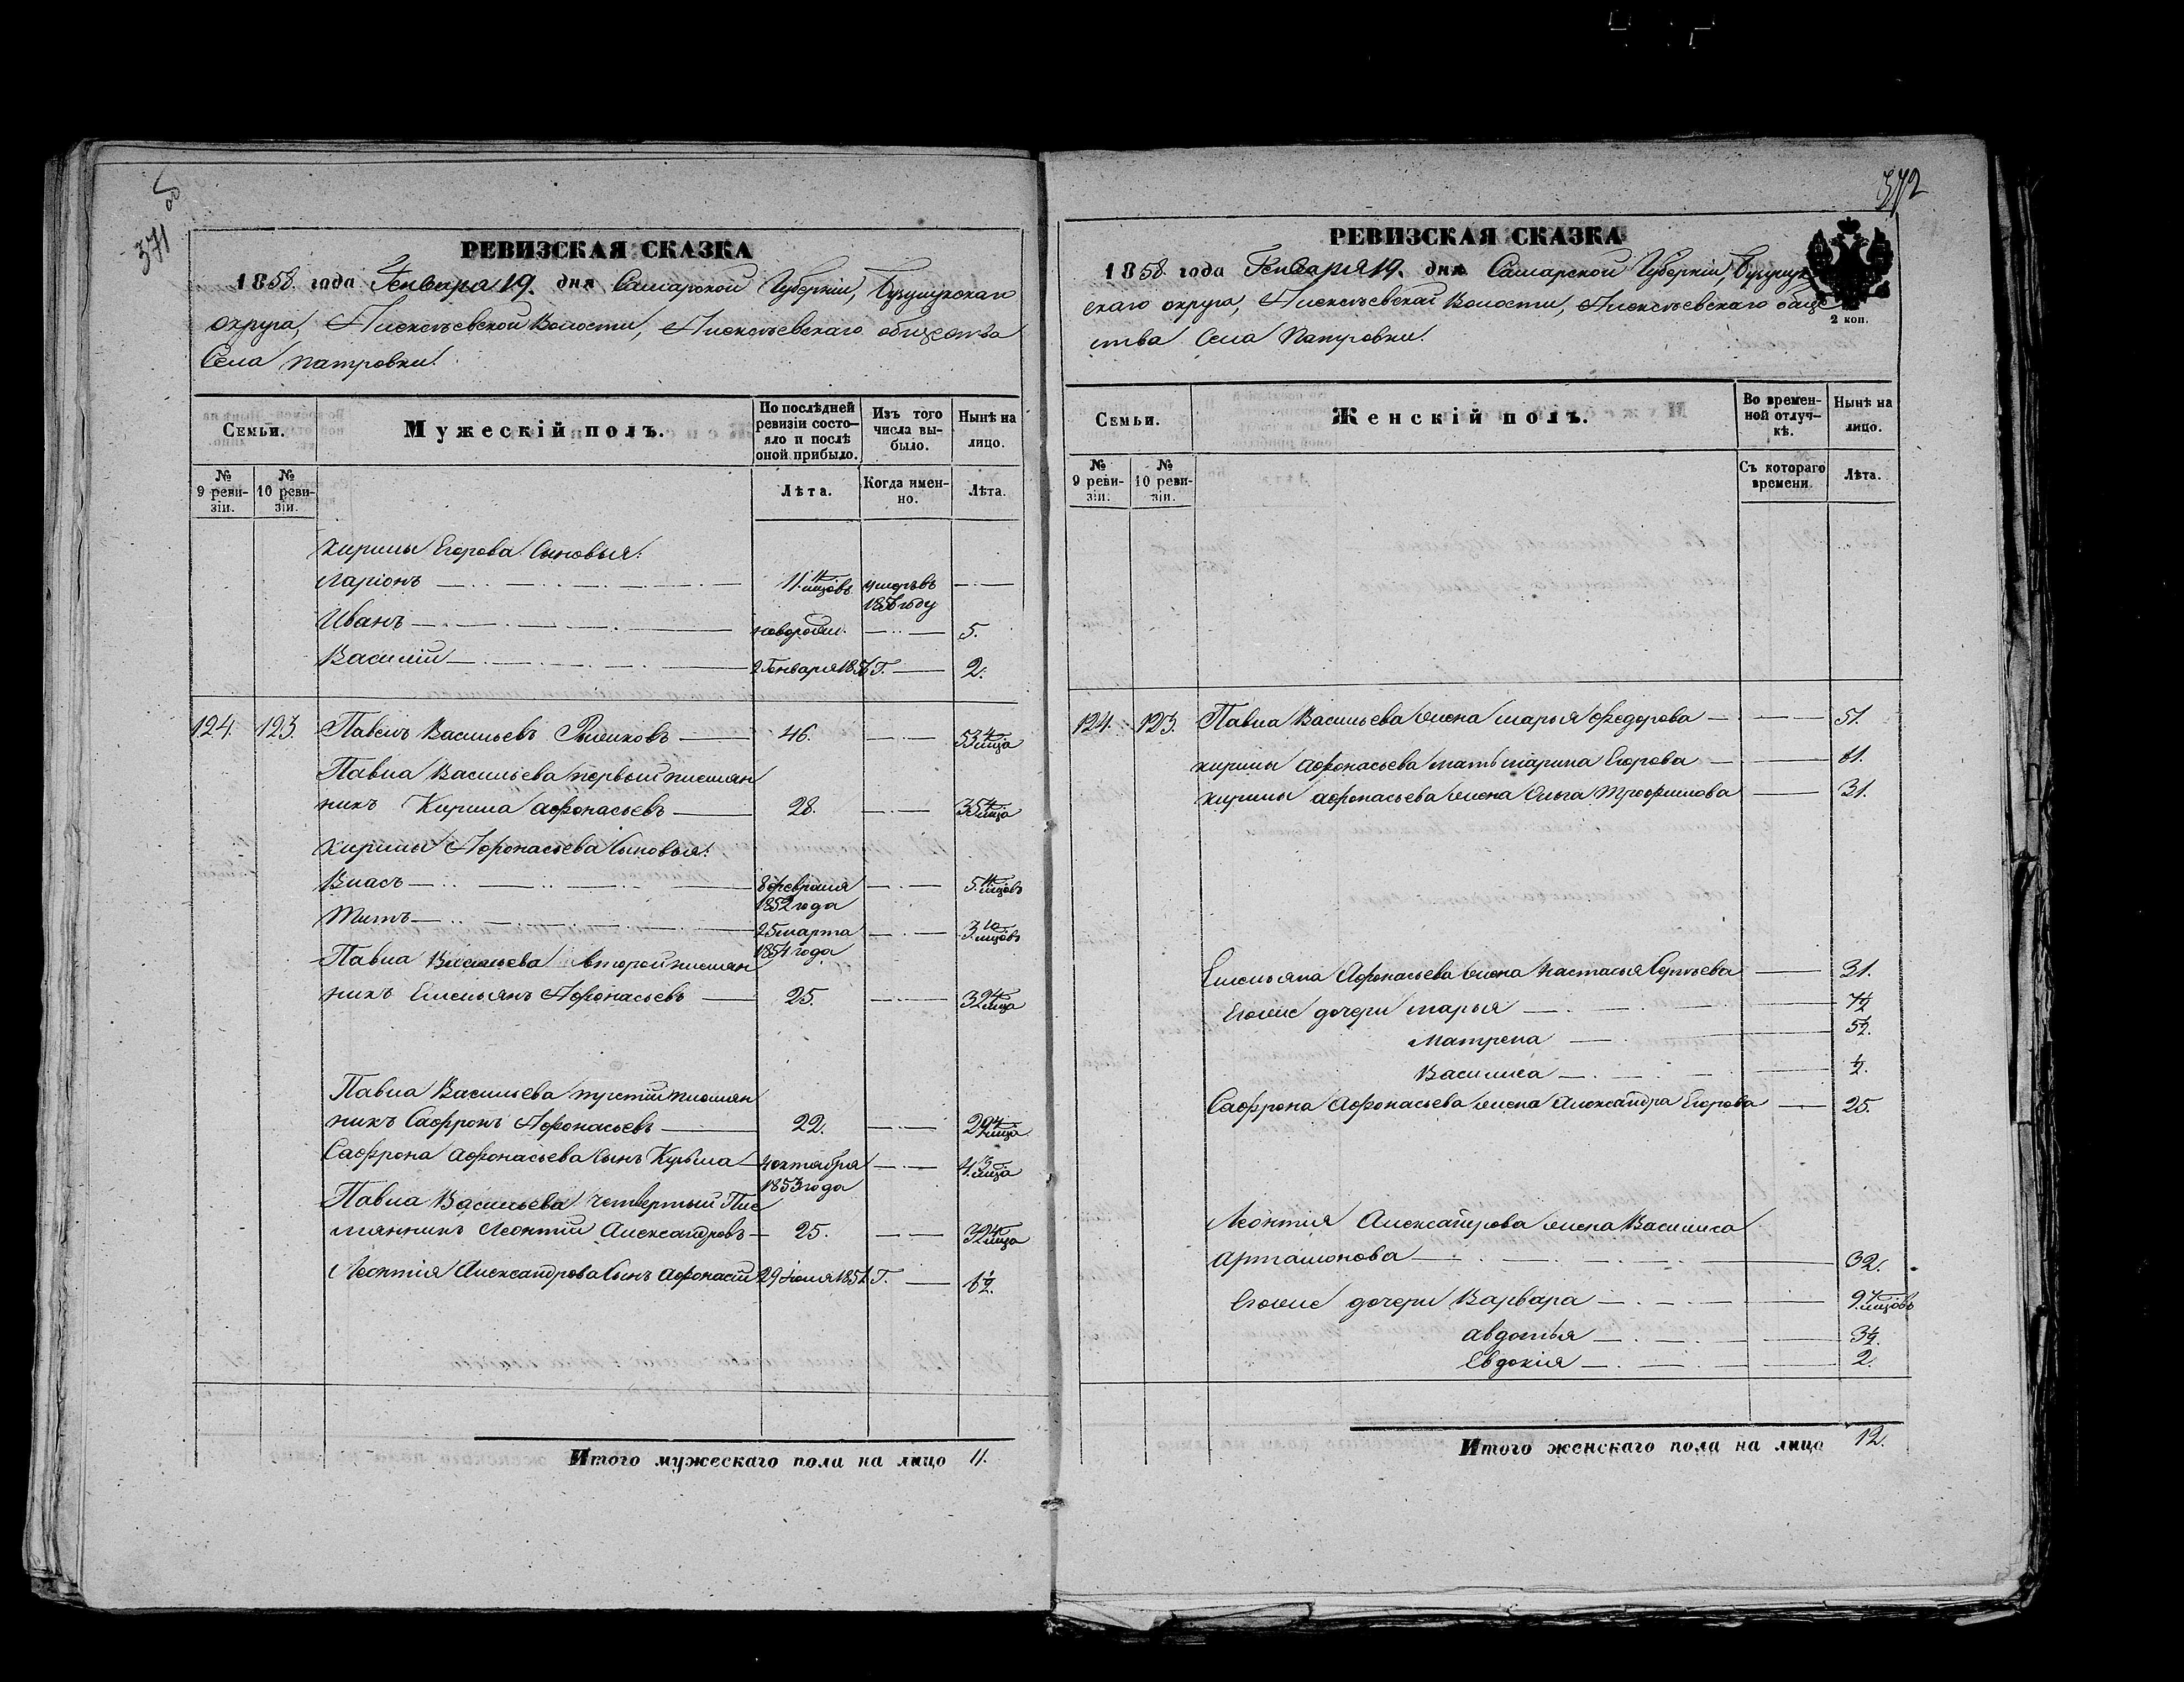 371
РЕВИЗСКАЯ СКАЗКА
1858 года Генваря 19. дня Самарской Губерніи, Бузулукскаго
округа, Алексѣевской Волости, Алексѣевскаго общества
Села Патровки.
Семьи.
Мужескій полъ.
По послѣдней ревизіи состо-яло и послѣ оной прибыло.
Изъ того числа вы-было.
Нынѣ на лицо.
№ 9 реви-зіи.
№ 10 реви-зіи.
Лѣта.
Когда имен-но.
Лѣта.
Кирилы Егорова Сыновья:
Ларіонъ 11. мцовъ умеръ въ
Иванъ новорожд. 5.
Василій 2 Генваря Г. 2.
124. 123. Павелъ Васильевъ 46. 53 4/мца
Павла Васильева первый племян
никъ Кирила Афонасьевъ 28. 35 4/мца
Кирилы Афонасьева Сыновья:
Власъ 8 февраля 5. 11/мцовъ
1852 года
Титъ 25 марта 3. 10/мцовъ
1854 года
Павла Васильева второй племян
никъ Емельянъ Афонасьевъ 25. 32 4/мца
Павла Васильева третій племян
никъ Сафронъ Афонасьевъ 22. 29 4/мца
Сафрона Афонасьева Сынъ Кузьма октября 4. 3/мца
1853 года
Павла Васильева четвертый Пле
мянникъ Леонтій Александровъ 25. 32 4/мца
Леонтія Александрова Сынъ Афонасій 29 Г. ½.
Итого мужескаго пола на лицо 11.
372
РЕВИЗСКАЯ СКАЗКА
1858 года Генваря 19. дня Самарской Губерніи, Бузулук
скаго округа, Алексѣевской Волости, Алексѣевскаго обще
2 коп.
ства Села Патровки.
Семьи.
Женскій полъ.
Во времен-ной отлуч-кѣ.
Нынѣ на лицо.
№ 9 реви-зіи.
№ 10 реви-зіи.
Съ котораго времени.
Лѣта.
124. 123. Павла Васильева жена Марья Федорова 51.
Кирилы Афонасьева мать Марина Егорова 61.
Кирилы Афонасьева жена Ольга Трофимова 31.
Емельяна Афонасьева жена Настасья Сергѣева 31.
Егоже дочери Марья 7½
Матрена 5½.
Василиса ½.
Сафрона Афонасьева жена Александра Егорова 25.
Леонтія Александрова жена Василиса
Артамонова 32.
Егоже дочери Варвара 9. мцовъ
Авдотья 3½.
Евдокія 2.
Итого женскаго пола на лицо 12.